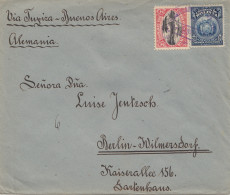 Via Tupiza-Buenos Aires
Alemania.
Señora Dña.
Luise Jentzsch
Berlin-Wilmersdorf.
Kaiserallee 156.
Gartenhaus.